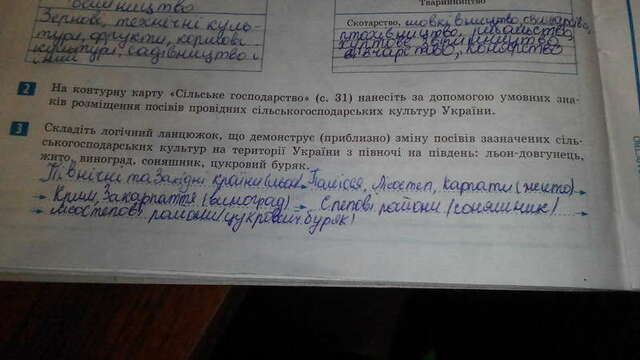 Рослинництво
Зернові, технічні куль-
тури, фрукти, кормові
культури, садівництво і
інші
Тваринництво
Скотарство, шовківництво, свинарство,
птахівництво, рибальство,
хутрове звірівництво,
вівчарство, конярство
2 На контурну карту «Сільське господарство» (с. 31) нанесіть за допомогою умовних зна-
ків розміщення посівів провідних сільськогосподарських культур України.
3 Складіть логічний ланцюжок, що демонструє (приблизно) зміну посівів зазначених сіль-
ськогосподарських культур на території України з півночі на південь: льон-довгунець,
жито, виноград, соняшник, цукровий буряк.
Північні та Західні країни (льон) Полісся, Лісостеп, Карпати (жито)
Крим, Закарпаття (виноград) Степові райони (соняшник)
Лісостепові райони (цукровий буряк)